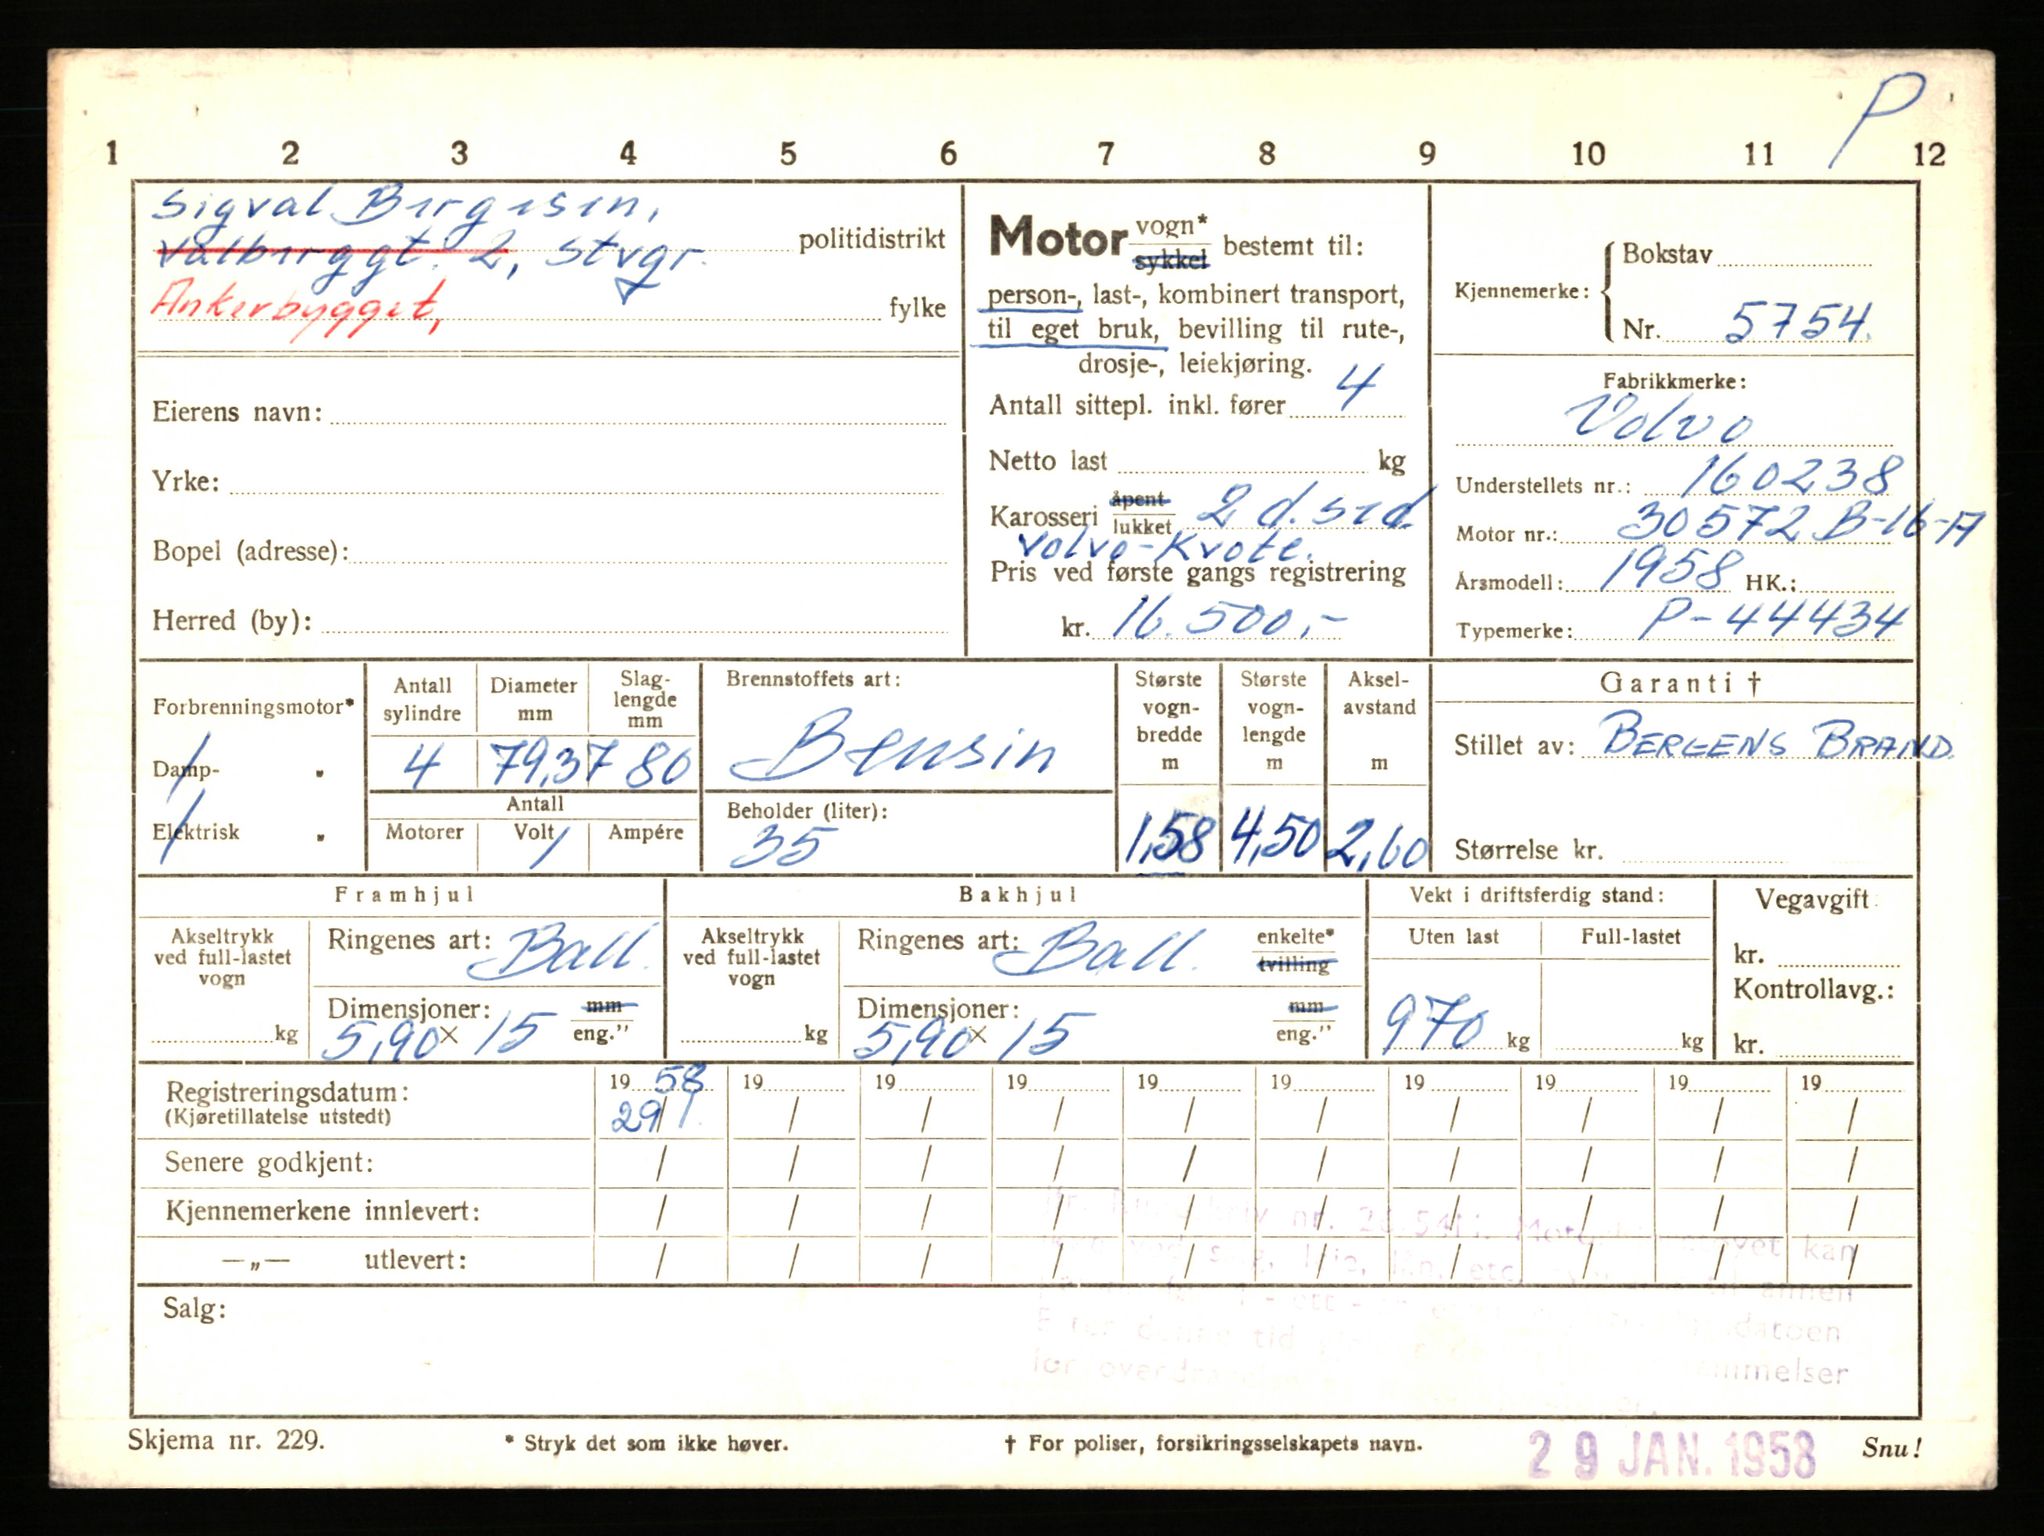 P
1 2 3 4 5 6 7 8 9 10 11 12
Sigval Bergesen,
Valberggt. 2, Stvgr. politidistrikt
Ankerbygget, fylke
Eierens navn:
Yrke:
Bopel (adresse):
Herred (by):
Motor vogn* sykkel bestemt til:
person-, last-, kombinert transport,
til eget bruk, bevilling til rute-,
drosje-, leiekjøring.
Antall sittepl. inkl. fører 4
Netto last kg
Karosseri åpent lukket 2 d. sed
Volvo-Kvote.
Pris ved første gangs registrering
kr. 16.500,-
Kjennemerke: Bokstav
Nr. 5754.
Fabrikkmerke:
Volvo
Understellets nr.: 160238
Motor nr.: 30572 B-16-A
Årsmodell: 1958 HK.:
Typemerke: P-44434
Forbrenningsmotor*
Damp- "
Elektrisk "
Antall sylindre
Diameter mm
Slag-lengde mm
4 79,37 80
Antall
Motorer Volt Ampére
Brennstoffets art:
Bensin
Beholder (liter):
35
Største vogn-bredde m
1,58
Største vogn-lengde m
4,50
Aksel-avstand m
2,60
Garanti †
Stillet av: BERGENS BRAND.
Størrelse kr.
Framhjul
Akseltrykk
ved full-lastet
vogn
kg
Ringenes art: Ball.
Dimensjoner: mm
5,90 x 15 eng."
Bakhjul
Akseltrykk
ved full-lastet
vogn
kg
Ringenes art: Ball. enkelte* tvilling
Dimensjoner: mm
5,90 x 15 eng."
Vekt i driftsferdig stand:
Uten last Full-lastet
970 kg kg
Vegavgift
kr.
Kontrollavg.:
kr.
Registreringsdatum: 19 58 19 19 19 19 19 19 19 19 19
(Kjøretillatelse utstedt) 29/1 / / / / / / / / /
Senere godkjent: / / / / / / / / / /
Kjennemerkene innlevert: / / / / / / / / / /
—„— utlevert: / / / / / / / / / /
Salg:
nr. kan
annen
tid datoen
for
Skjema nr. 229. * Stryk det som ikke høver. † For poliser, forsikringsselskapets navn. 29 JAN. 1958 Snu!